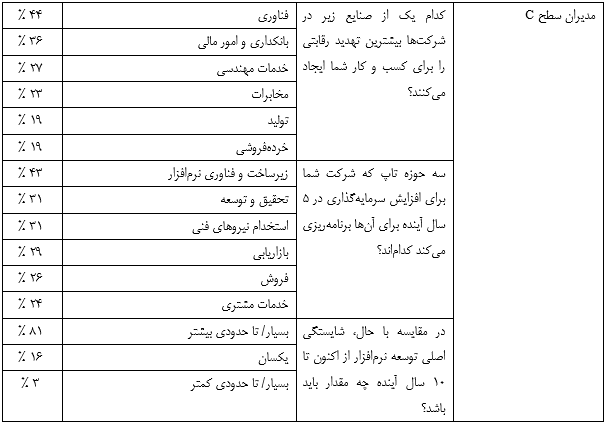 مدیران سطح C
کدام یک از صنایع زیر در
شرکت‌ها بیشترین تهدید رقابتی
را برای کسب و کار شما ایجاد
می‌کنند؟
فناوری
۴۴ ٪
بانکداری و امور مالی
۳۶ ٪
خدمات مهندسی
۲۷ ٪
مخابرات
۲۳ ٪
تولید
۱۹ ٪
خرده‌فروشی
۱۹ ٪
سه حوزه تاپ که شرکت شما
برای افزایش سرمایه‌گذاری در ۵
سال آینده برای آن‌ها برنامه‌ریزی
می‌کند کدام‌اند؟
زیرساخت و فناوری نرم‌افزار
۴۳ ٪
تحقیق و توسعه
۳۱ ٪
استخدام نیروهای فنی
۳۱ ٪
بازاریابی
۲۹ ٪
فروش
۲۶ ٪
خدمات مشتری
۲۴ ٪
در مقایسه با حال، شایستگی
اصلی توسعه نرم‌افزار از اکنون تا
۱۰ سال آینده چه مقدار باید
باشد؟
بسیار/ تا حدودی بیشتر
۸۱ ٪
یکسان
۱۶ ٪
بسیار/ تا حدودی کمتر
۳ ٪